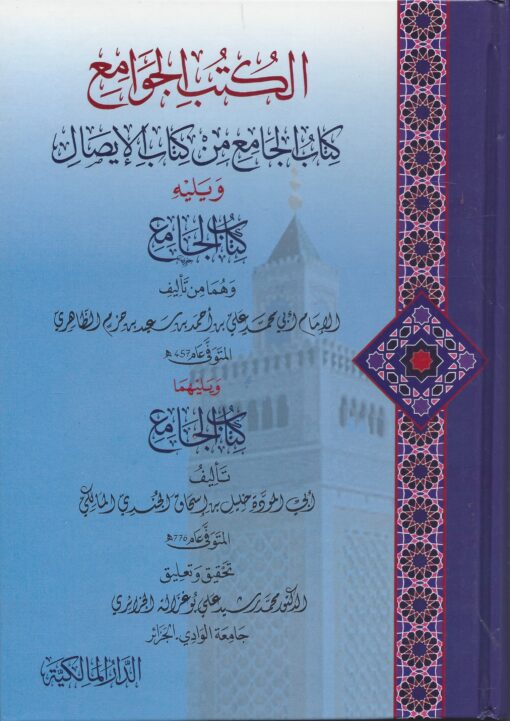 الكُتُبُ الجَوَامِعُ
كِتَابُ الجَامِعِ مِنْ كِتَابِ الإِيصَالِ
وَيَلِيْهِ
كِتَابُ الجَامِعِ
وَهُمَا مِن تَأْلِيفِ
الإمام أبي محمد علي بن أحمد بن سعيد بن حزم الظاهري
المتوفَّى عام 457هـ
وَيَلِيْهِمَا
كِتَابُ الجَامِعِ
تَأْلِيفُ
أبي المودَّة خليل بن إسحاق الجُندي المالكي
المتوفَّى عام 776هـ
تحقيق وتعليق
الدكتور محمد رشيد علي بوغزالة الجزائري
جامعة الوادي.الجزائر
الدَّارُ المَالِكِيَّة